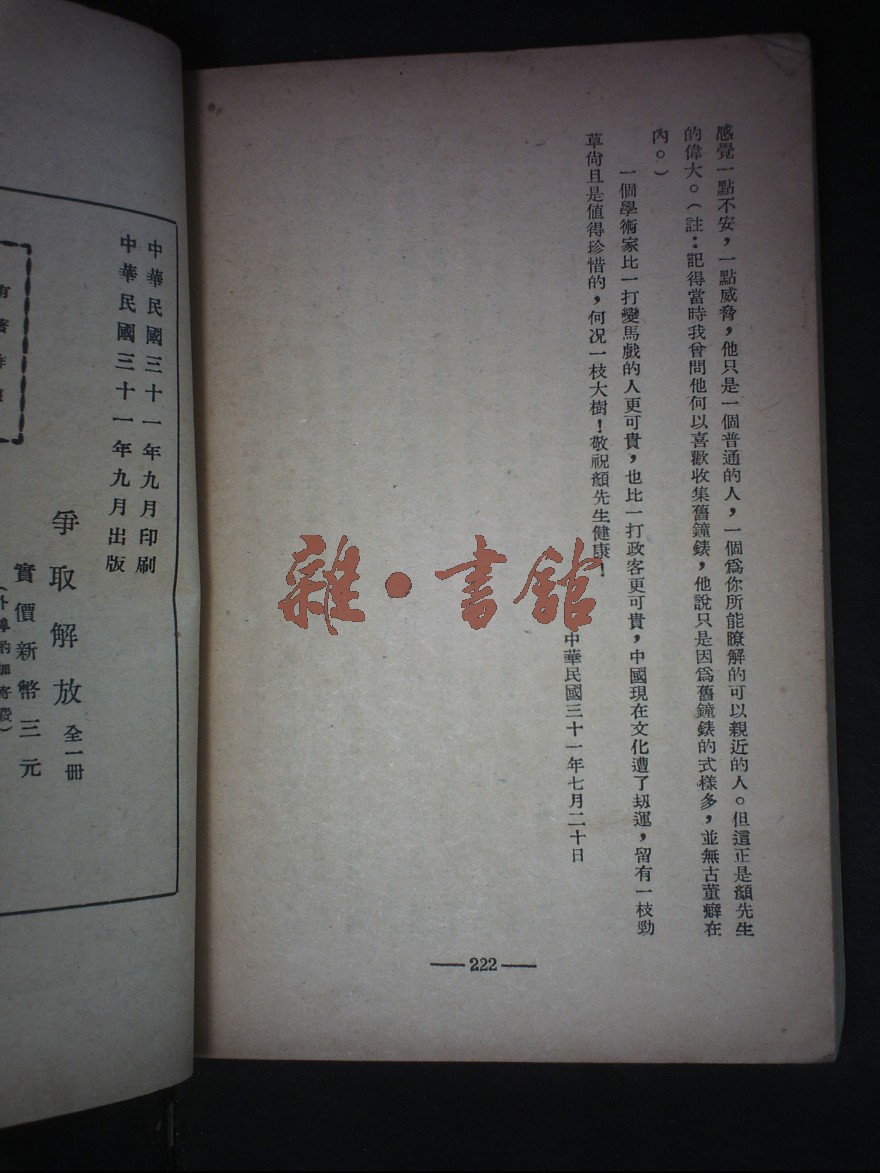 感覺一點不安，一點威脅，他只是一個普通的人，一個爲你所能瞭解的可以親近的人。但這正是顏先生
的偉大。（註：記得當時我曾問他何以喜歡收集舊鐘錶，他說只是因爲舊鐘錶的式樣多，並無古董癖在
內。）
一個學術家比一打變馬戲的人更可貴，也比一打政客更可貴，中國現在文化遭了刼運，留有一枝勁
草尙且是値得珍惜的，何况一枝大樹！敬祝顏先生健康！
中華民國三十一年七月二十日
222
中華民國三十一年九月印刷
中華民國三十一年九月出版
爭取解放 全一冊
實價新幣三元
（外埠酌加寄費）
有著作
雜·書館